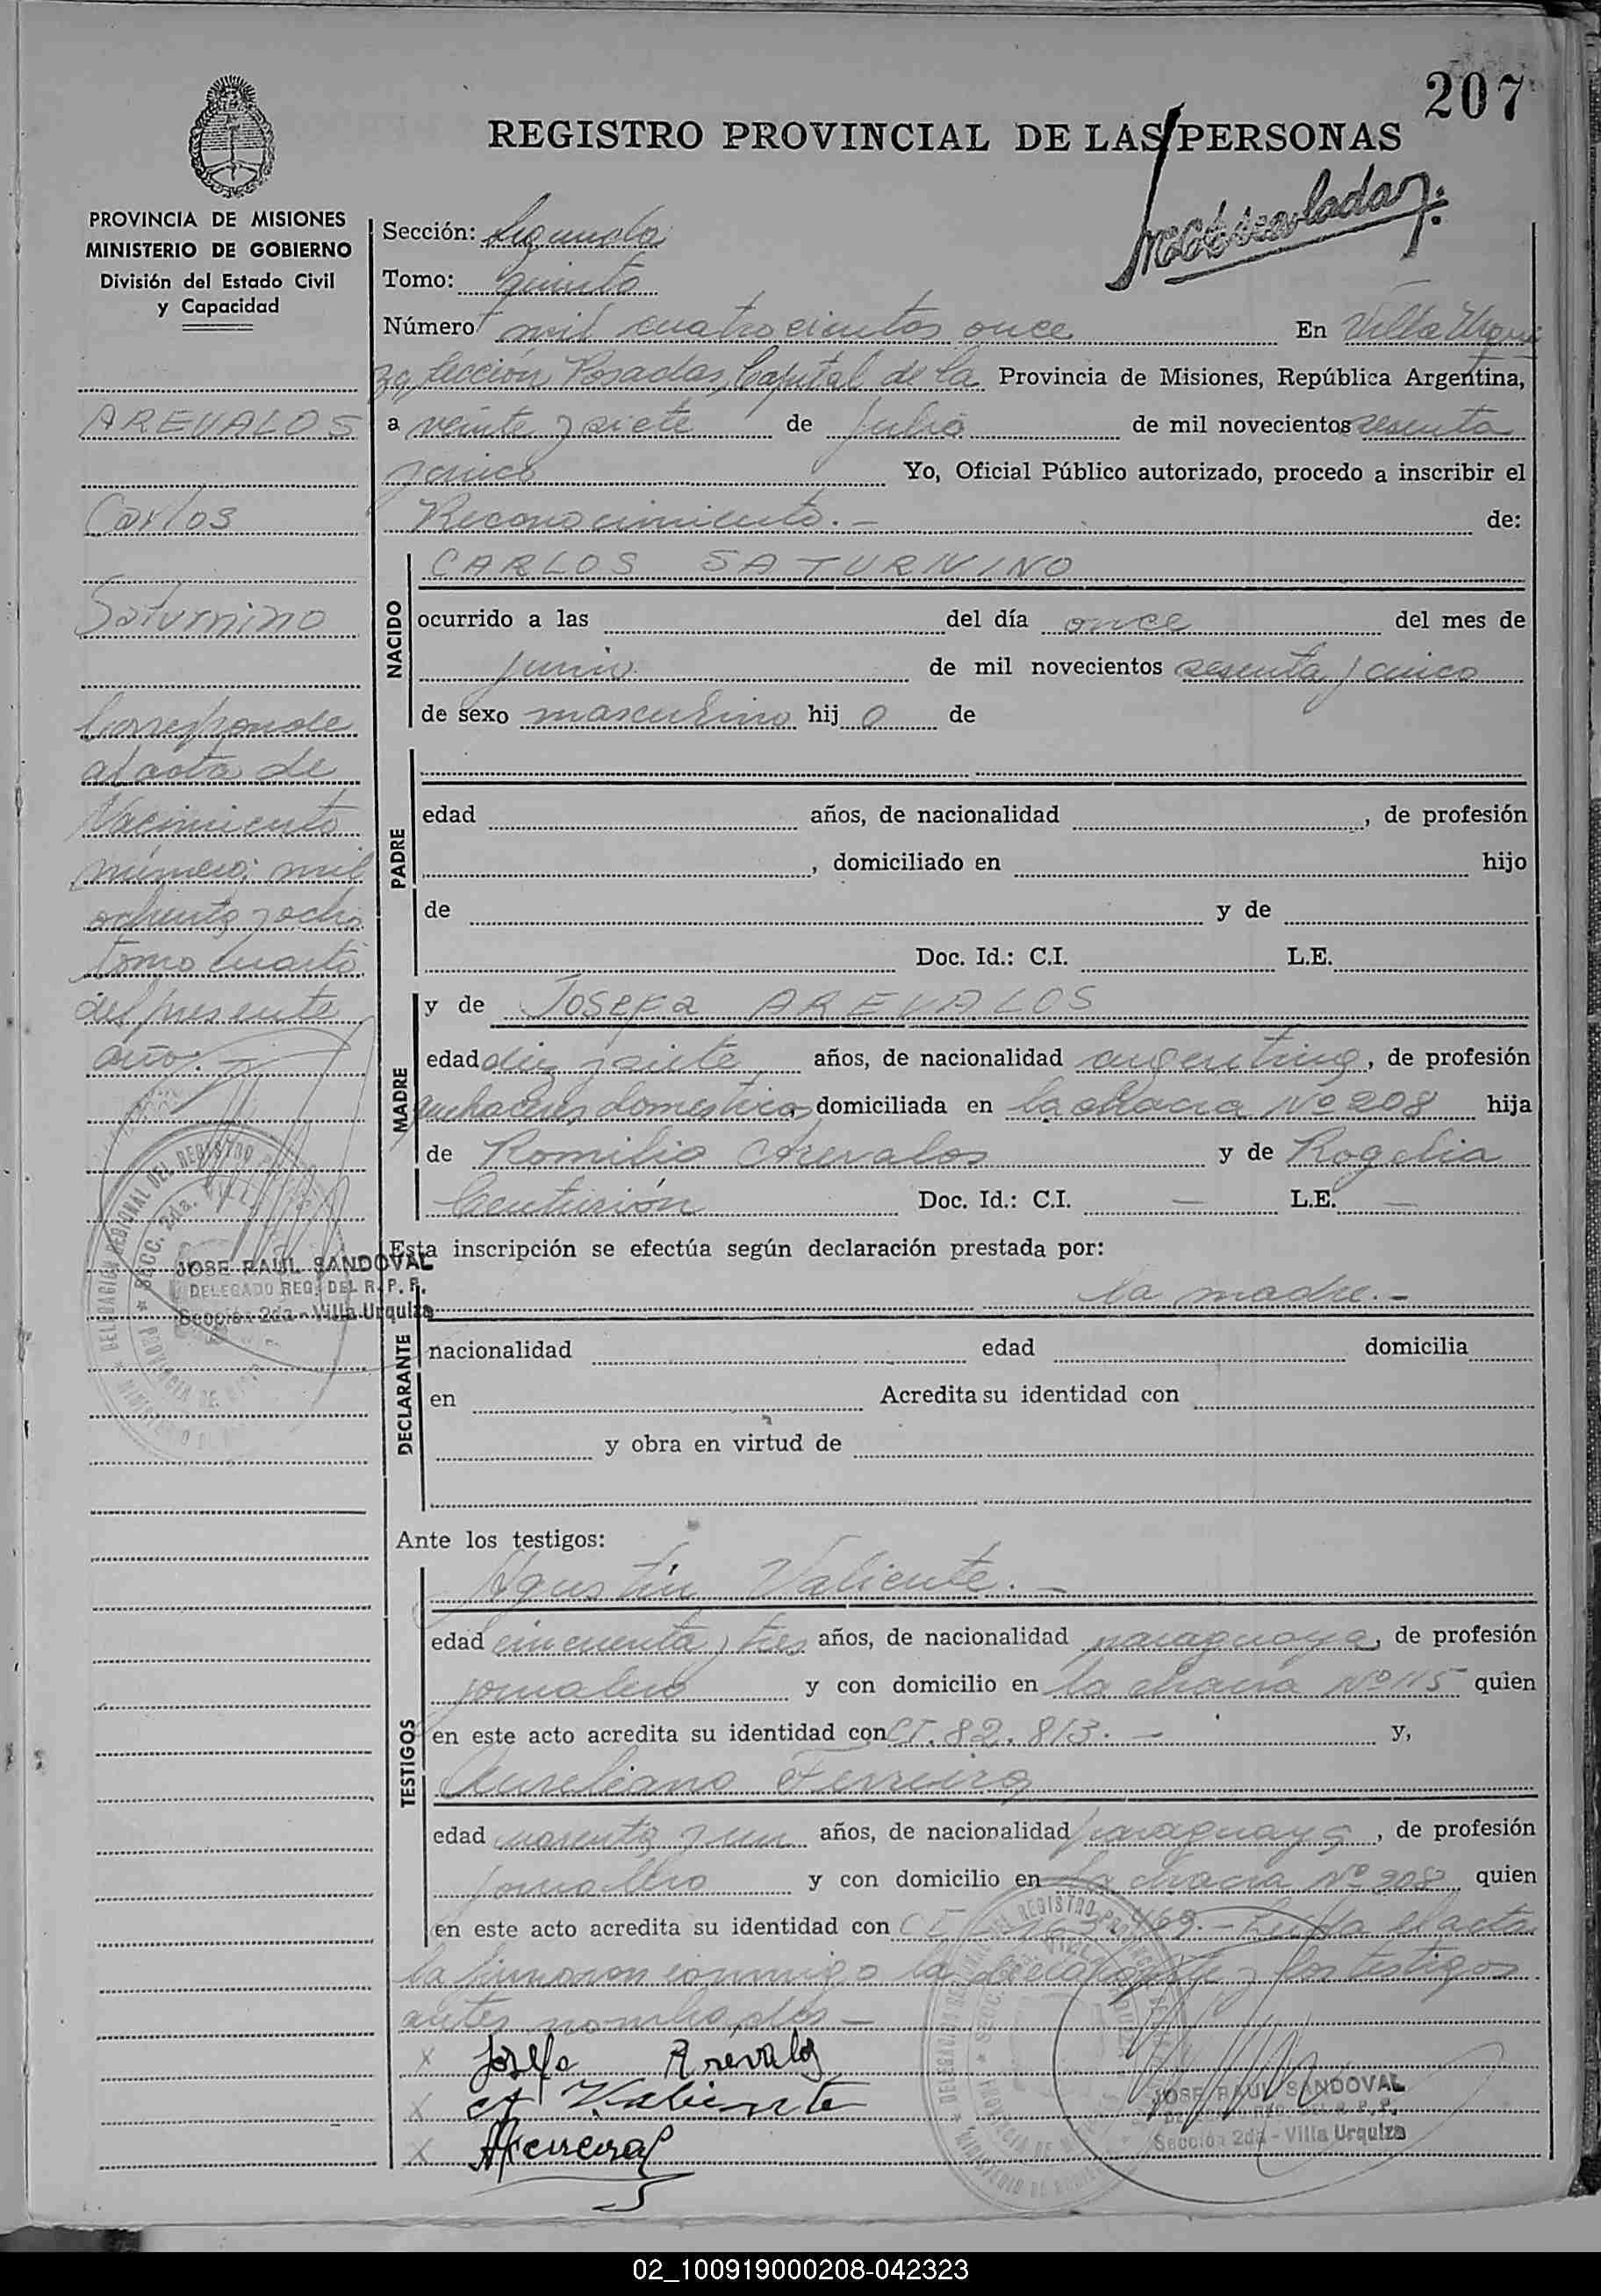 207
REGISTRO PROVINCIAL DE LAS PERSONAS
PROVINCIA DE MISIONES
MINISTERIO DE GOBIERNO
División del Estado Civil
y Capacidad
Sección: Segunda
Tomo: quinto
Número mil cuatrocientos once En Villa Urqui
za, Sección Posadas, Capital de la Provincia de Misiones, República Argentina,
a veinte y siete de julio de mil novecientos sesenta
y cinco Yo, Oficial Público autorizado, procedo a inscribir el
Reconocimiento.- de:
AREVALOS
Carlos
Saturnino
Corresponde
al acta de
Nacimiento
número: mil
ochenta y ocho
tomo cuarto
del presente
año.-
JOSE RAUL SANDOVAL
DELEGADO REG. DEL R. P. P.
Sección 2da - Villa Urquiza
NACIDO
CARLOS SATURNINO
ocurrido a las del día once del mes de
junio de mil novecientos sesenta y cinco
de sexo masculino hij o de
PADRE
edad años, de nacionalidad , de profesión
, domiciliado en hijo
de y de
Doc. Id.: C.I. L.E.
MADRE
y de Josefa AREVALOS
edad diez y siete años, de nacionalidad argentina, de profesión
quehaceres domesticos domiciliada en la chacra Nº 208 hija
de Romilio Arevalos y de Rogelia
Centurión Doc. Id.: C.I. — L.E. —
Esta inscripción se efectúa según declaración prestada por:
la madre.-
DECLARANTE
nacionalidad edad domicilia
en Acredita su identidad con
y obra en virtud de
Ante los testigos:
TESTIGOS
Agustín Valiente.-
edad cincuenta y tres años, de nacionalidad paraguaya, de profesión
jornalero y con domicilio en la chacra Nº 115 quien
en este acto acredita su identidad con CI. 82.813.- y,
Aureliano Ferreira
edad cuarenta y un años, de nacionalidad paraguaya, de profesión
jornalero y con domicilio en la chacra Nº 208 quien
en este acto acredita su identidad con CI 469.- Leída el acta
la firmaron conmigo la declarante y los testigos
antes nombrados-
x Josefa Arevalos
x A Valiente
x AFerreira
JOSE RAUL SANDOVAL
Sección 2da - Villa Urquiza
02_100919000208-042323